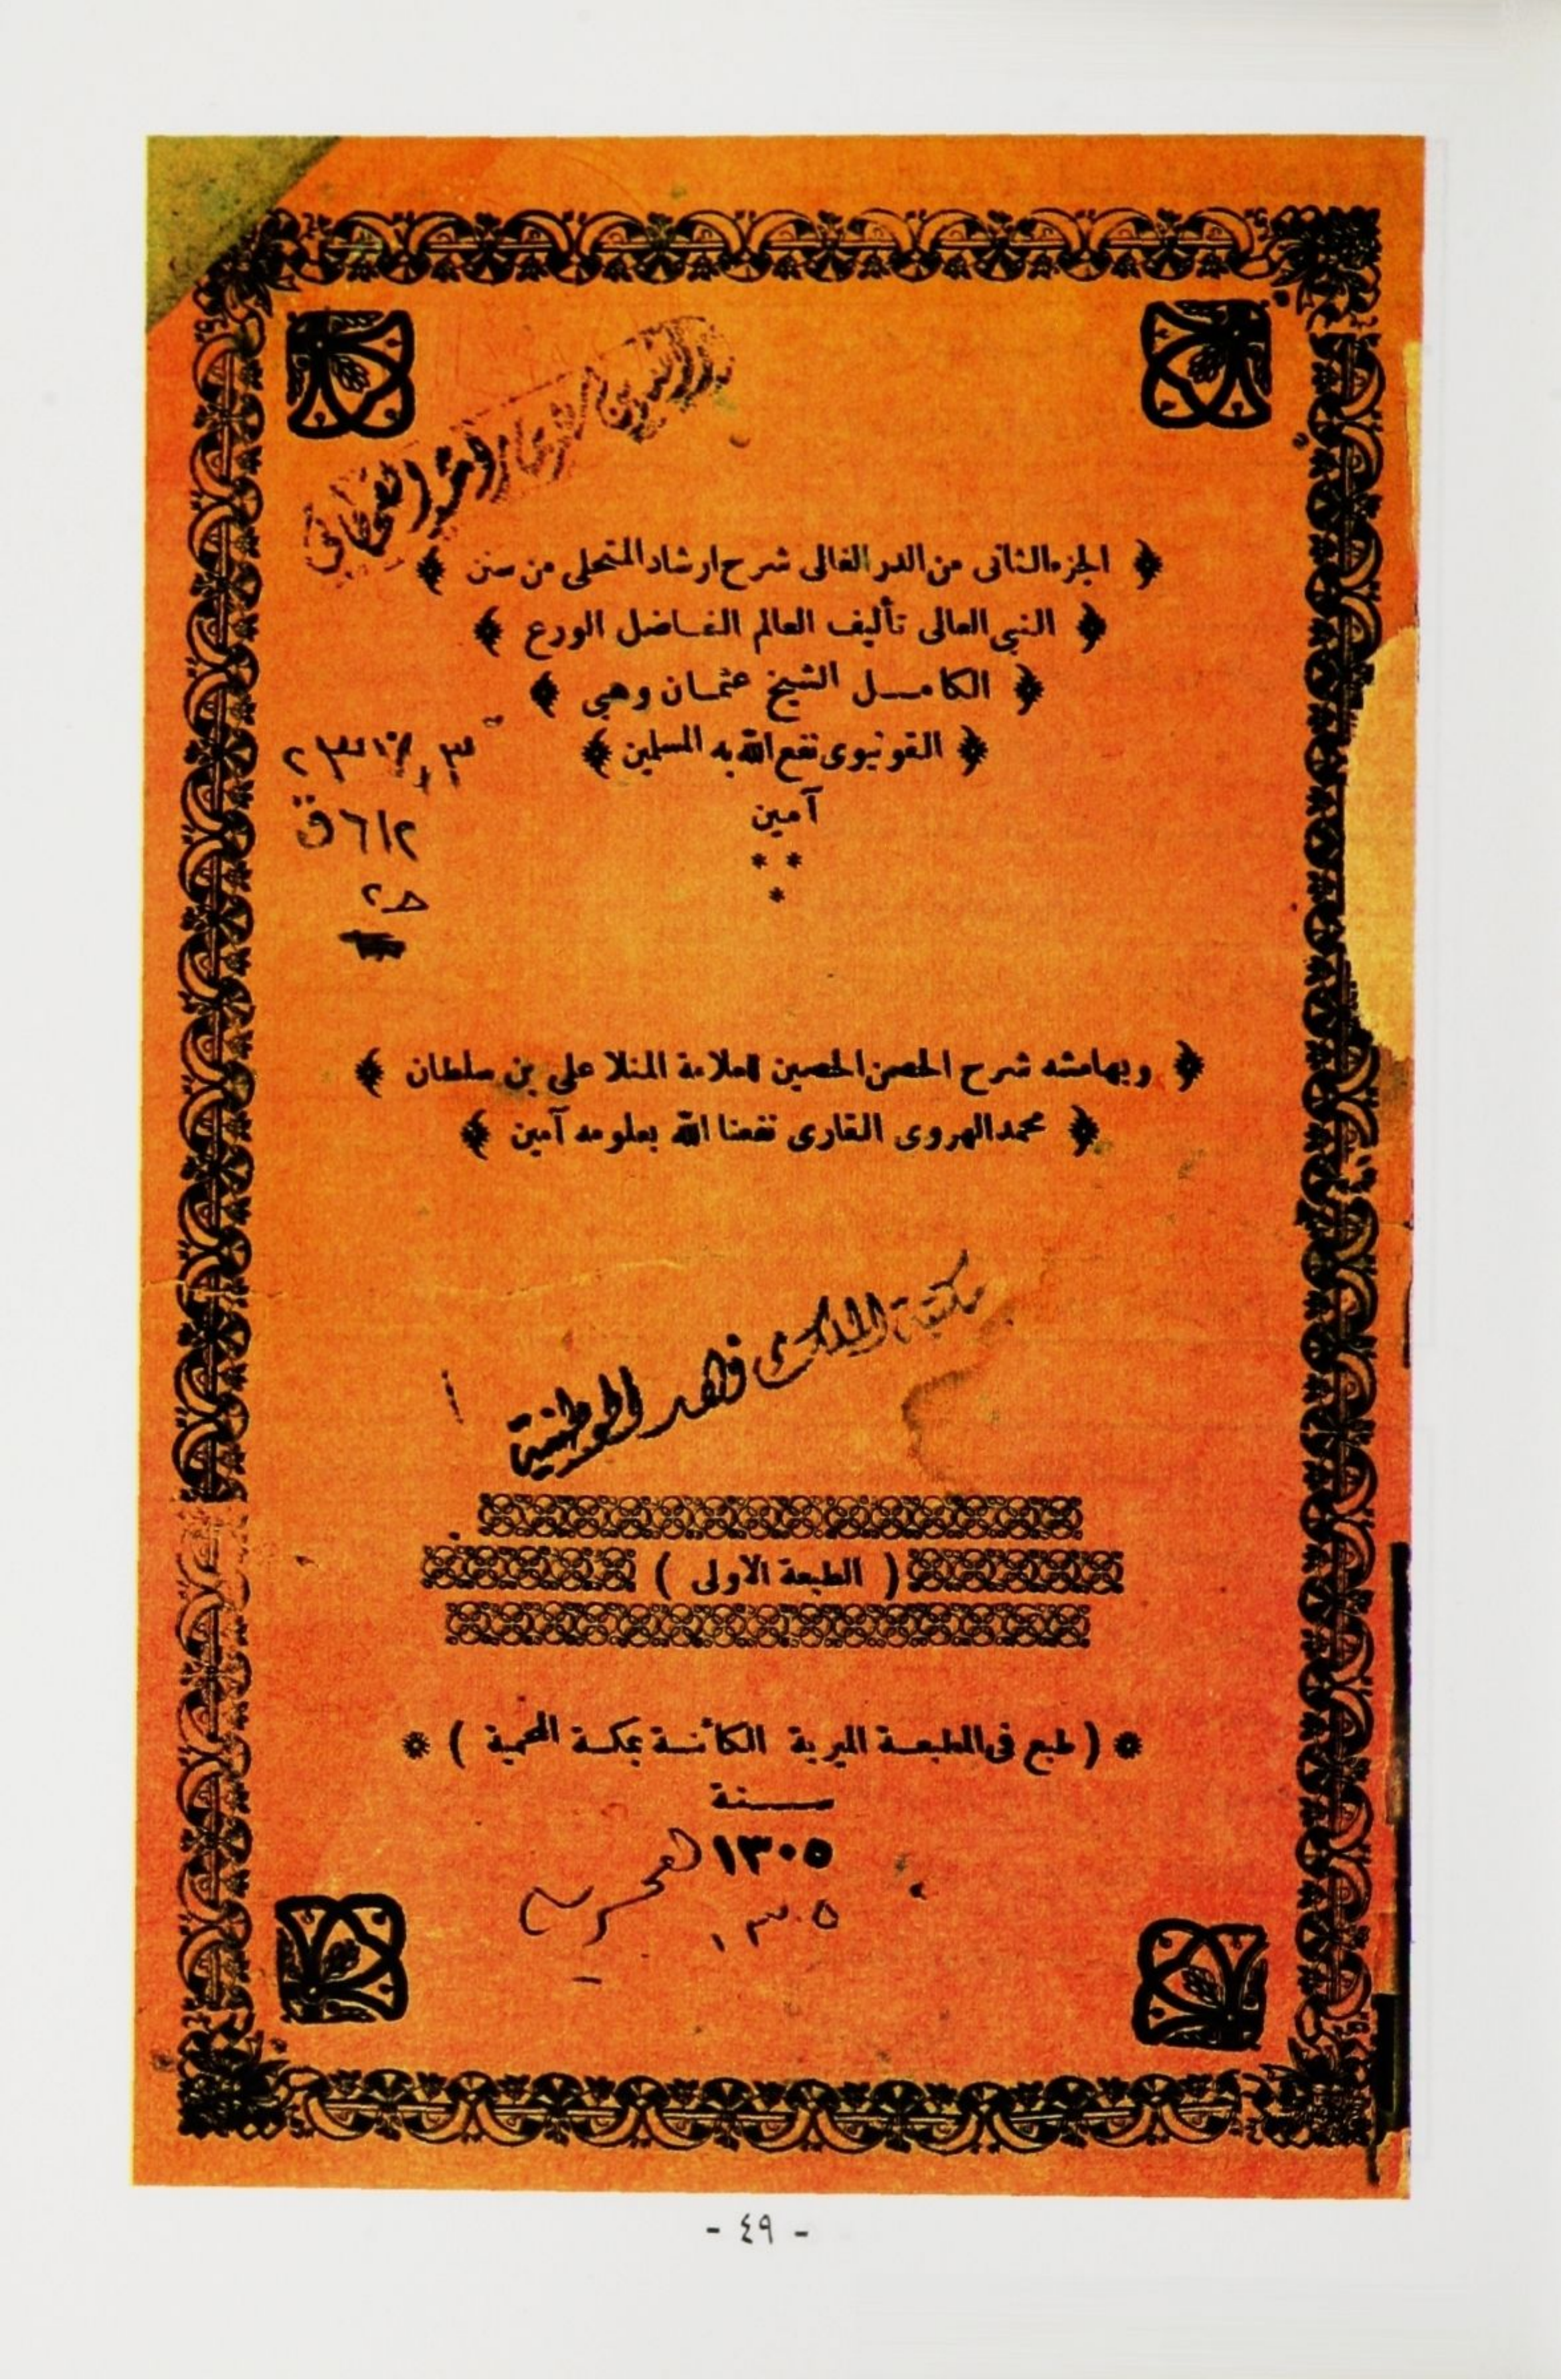 ﴿ الجزء الثانى من الدر الغالى شرح ارشاد المتحلى من سنن ﴾
﴿ النبى العالى تأليف العالم الفاضل الورع ﴾
﴿ الكامل الشيخ عثمان وهبى ﴾
﴿ القونيوى نفع الله به المسلمين ﴾
آمين
* *
*
٢١٦ق
ح٢
﴿ وبهامشه شرح الحصن الحصين للعلامة المنلا على بن سلطان ﴾
﴿ محمد الهروى القارى نفعنا الله بعلومه آمين ﴾
مكتبة الملك فهد الوطنية
( الطبعة الاولى )
* ( طبع فى المطبعة الميرية الكائنة بمكة المحمية ) *
سنة
١٣٠٥
١٣٠٥
- ٤٩ -